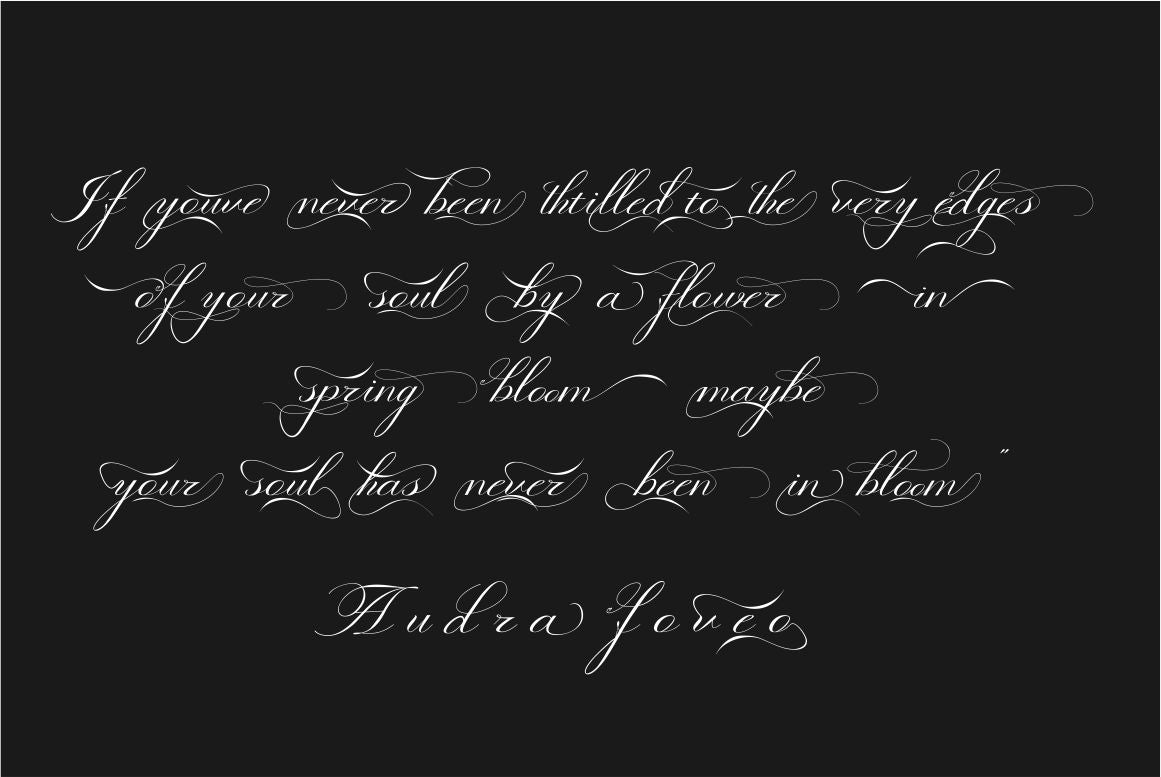 If youve never been thtilled to the very edges
of your soul by a flower in
spring bloom maybe
your soul has never been in bloom"
Audra foveo